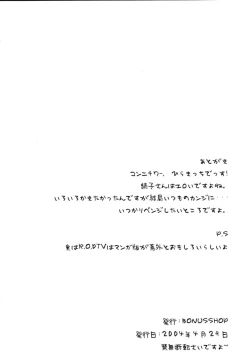 あとがき
コンニチワー、ひらきっちでっす!
読子さんはエロいですよね。
いろいろかきたかったんですが結局いつものカンジに・・・
いつかリベンジしたいところですよ。
P.S
実はR.O.DTVはマンガ版が意外とおもしろいらしいよ
発行:BONUSSHOP
発行日:2004年4月29日
禁無断転さいですよー